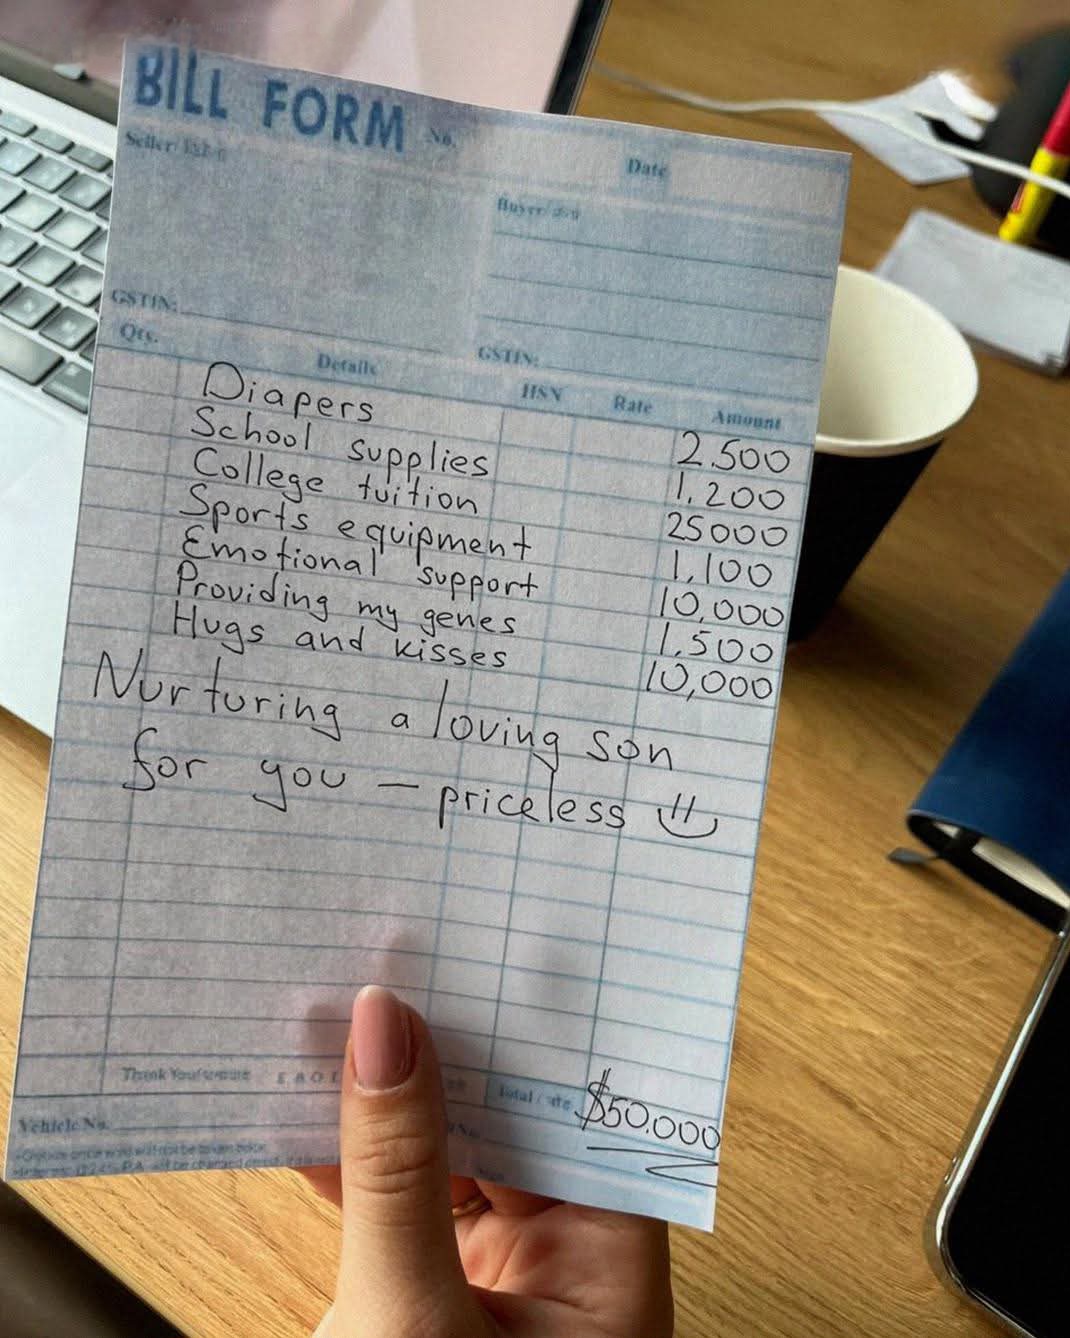 BILL FORM No.
Date
Seller
Buyer
GSTIN:
GSTIN:
Qty. Details HSN Rate Amount
Diapers 2.500
School supplies 1.200
College tuition 25000
Sports equipment 1,100
Emotional support 10,000
Providing my genes 1.500
Hugs and kisses 10,000
Nurturing a loving son
for you – priceless
Thank You
Total
$50.000
Vehicle No.